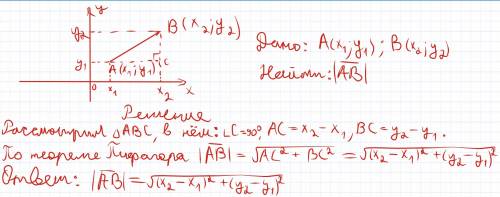 y
y₂
B(x₂;y₂)
y₁
A(x₁;y₁)
C
0
x₁
x₂
x
Дано: A(x₁;y₁); B(x₂;y₂)
Найти: |AB|
Решение
Рассмотрим △ABC, в нём: ∠C=90°, AC=x₂-x₁, BC=y₂-y₁.
По теореме Пифагора |AB|=√AC²+BC² = √(x₂-x₁)²+(y₂-y₁)²
Ответ: |AB|=√(x₂-x₁)²+(y₂-y₁)²